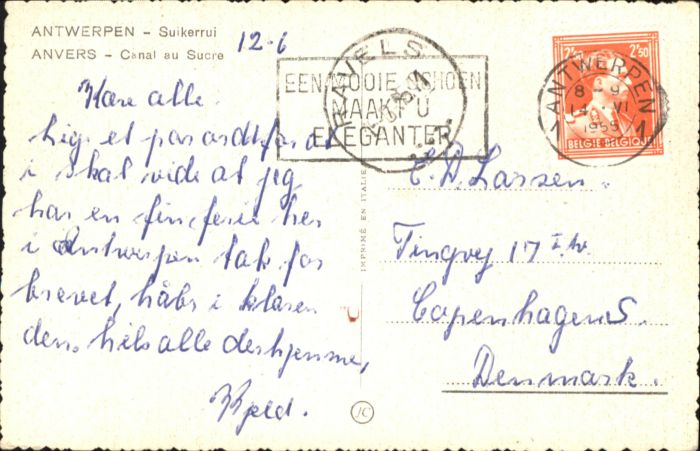 ANTWERPEN - Suikerrui
ANVERS - Canal au Sucre
12-6
Kære alle.
lige et par ord for at
i skal vide at jeg
har en fin ferie her
i Antwerpen tak for
brevet, håbr i klarer
dem, hils alle derhjemme,
Kjeld.
EEN MOOIE SCHOEN
MAAKT U
ELEGANTER
2F50 2F50
ANTWERPEN
8 - 9
14 - VI
1955
1
BELGIE BELGIQUE
IMPRIMÉ EN ITALIE
C. D. Larsen.
Tingvej 17 I. tv.
Copenhagen S.
Denmark.
JC